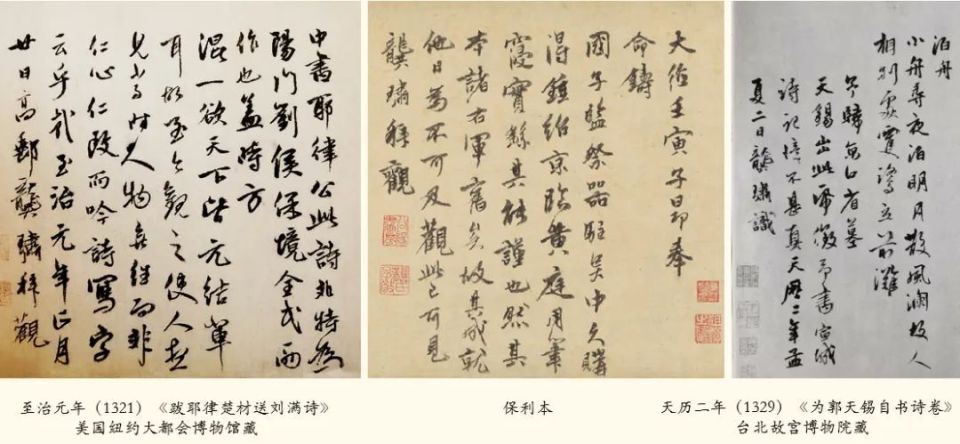 中書耶律公此詩非特為
陽門劉侯保境全民而
作也蓋時方
混一欲天下皆元結輩
耳 至今觀之使人起
時人物 而非
仁心仁政而吟詩寫字
云乎哉至治元年正月
廿日高郵龔璛拜觀
至治元年（1321）《跋耶律楚材送刘满诗》
美国纽约大都会博物馆藏
大德壬寅子昂奉
命鑄
國子監祭器駐吳中久購
得鍾紹京臨黃庭用筆
其能謹也然其
本諸右軍舊矣故其成就
他日為不可及觀此已可見
龔璛拜觀
保利本
泊舟
小舟尋夜泊明月散風瀾故人
相別處雙鷺立前灘
歸
天錫出此帋徵予書宣城
詩記憶不甚真天曆二年孟
夏二日龔璛識
天历二年（1329）《为郭天锡自书诗卷》
台北故宫博物院藏